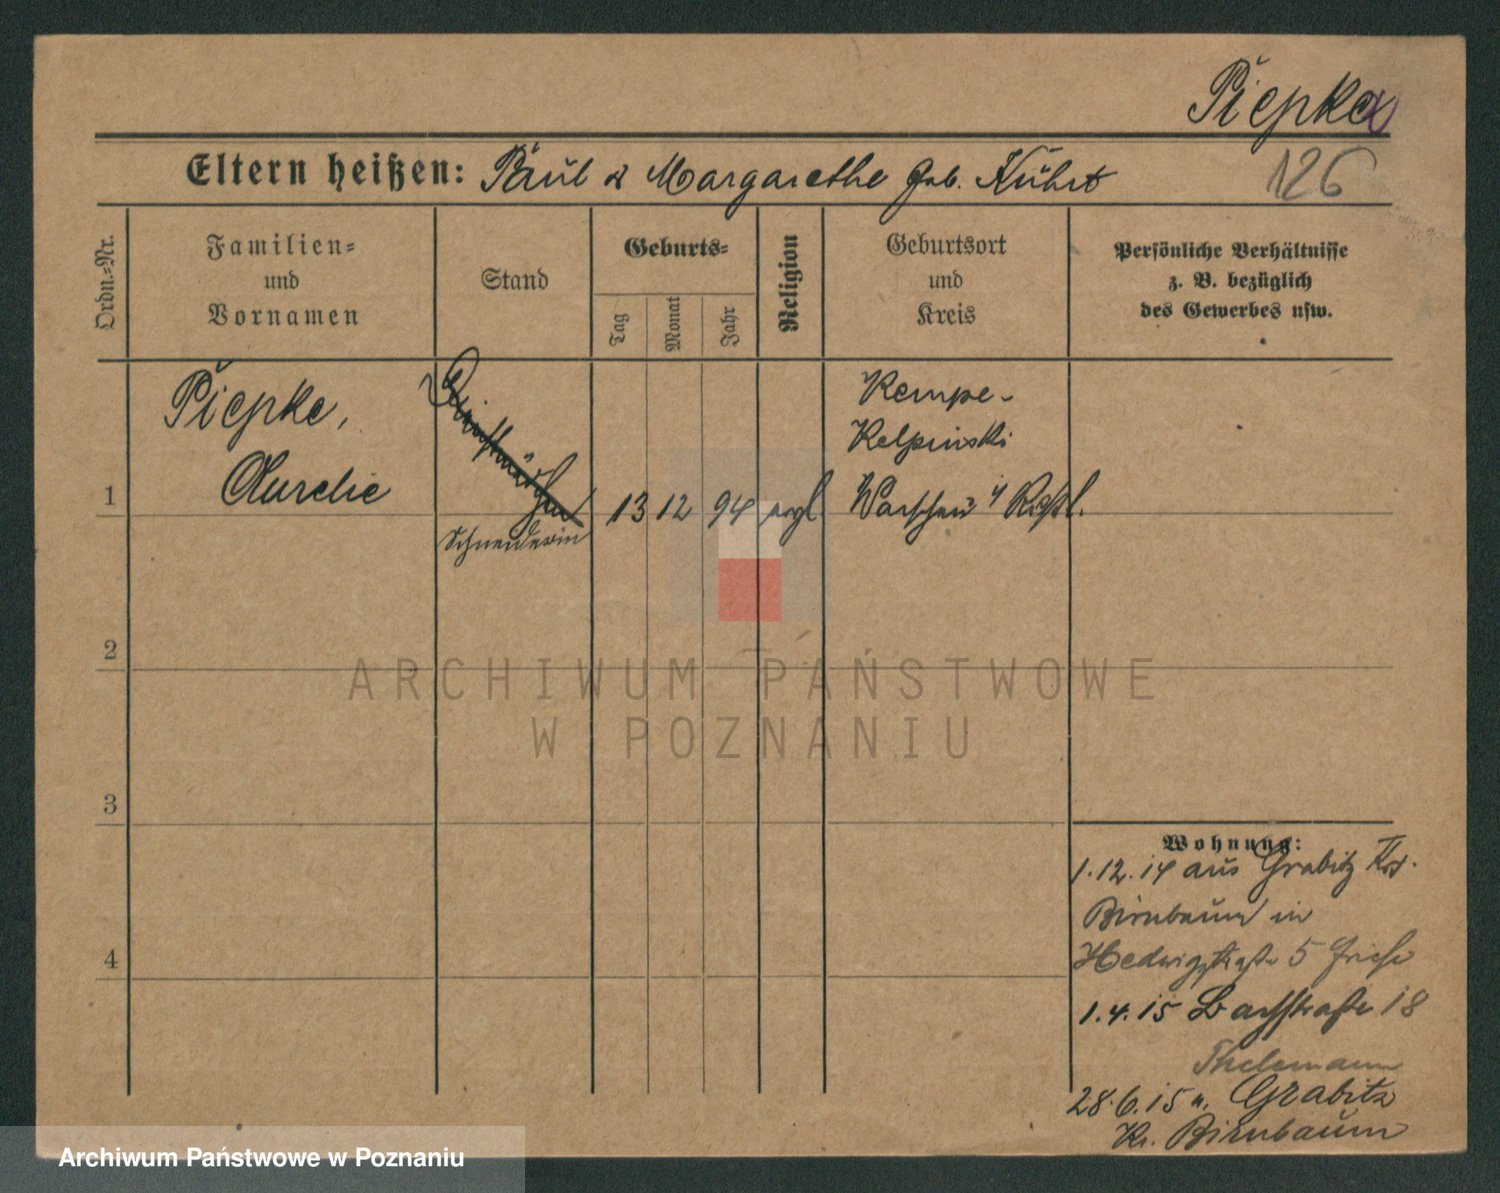 Piepke
Eltern heißen: Paul & Margarethe geb. Kührt
126
Ordn.=Nr.
Familien=
und
Vornamen
Stand
Geburts=
Tag
Monat
Jahr
Religion
Geburtsort
und
Kreis
Persönliche Verhältnisse
z. B. bezüglich
des Gewerbes usw.
1
Piepke,
Aurelie
Dienstmädchen
Schneiderin
13 12 94 evgl.
Kempe-
Kelpinski
Warschau Rußl.
2
3
4
Wohnung:
1.12.14 aus Grabitz Krs.
Birnbaum in
Hedwigstraße 5 Friese
1.4.15 Bachstraße 18
Thelemann
28.6.15 n. Grabitz
Kr. Birnbaum
ARCHIWUM PAŃSTWOWE
W POZNANIU
Archiwum Państwowe w Poznaniu